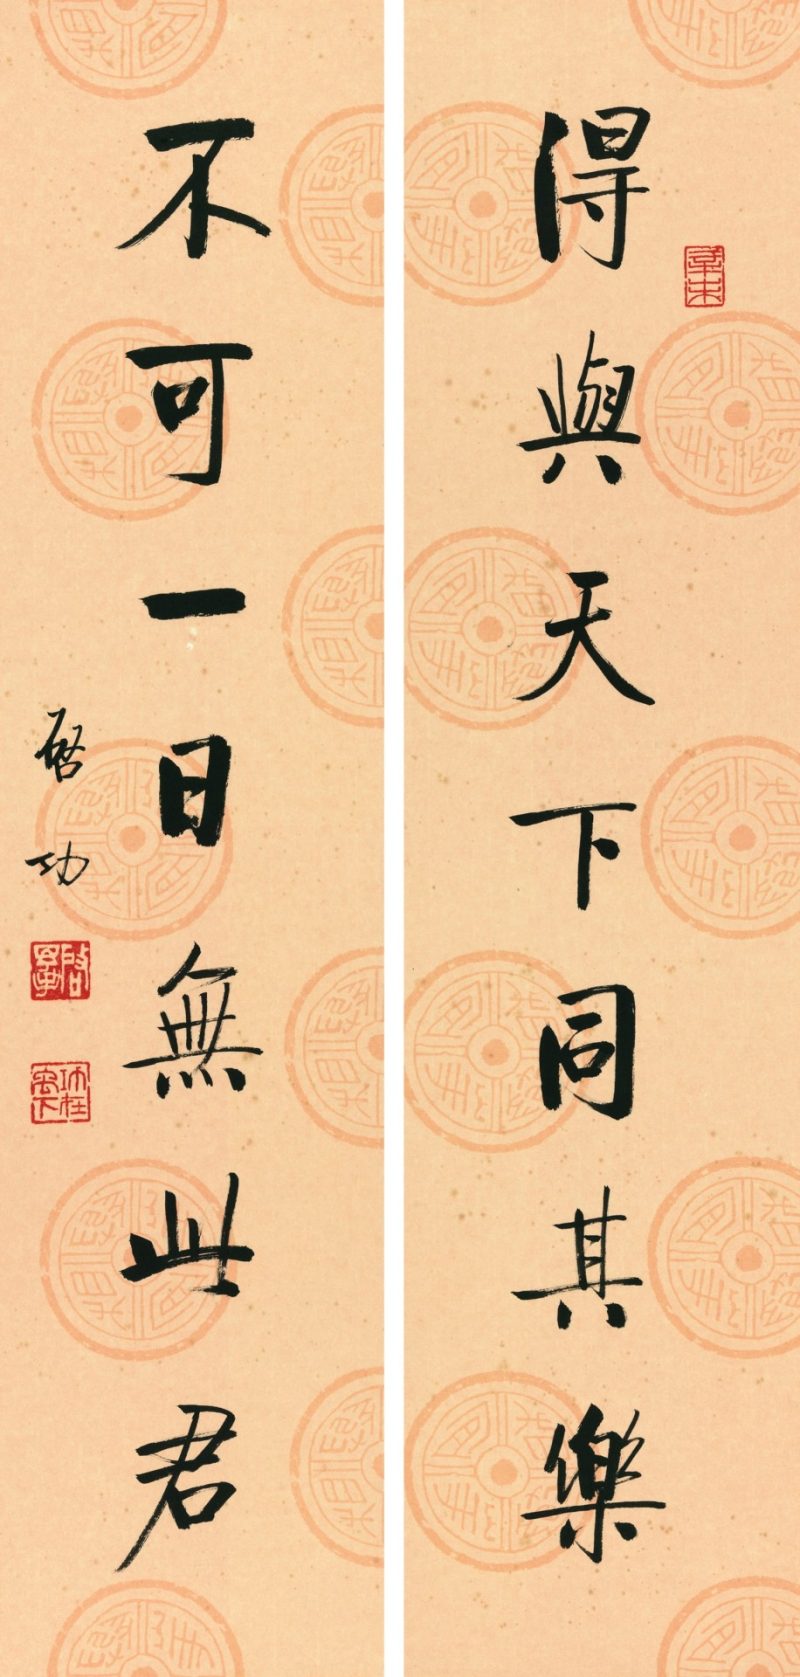 得與天下同其樂
不可一日無此君
啓功